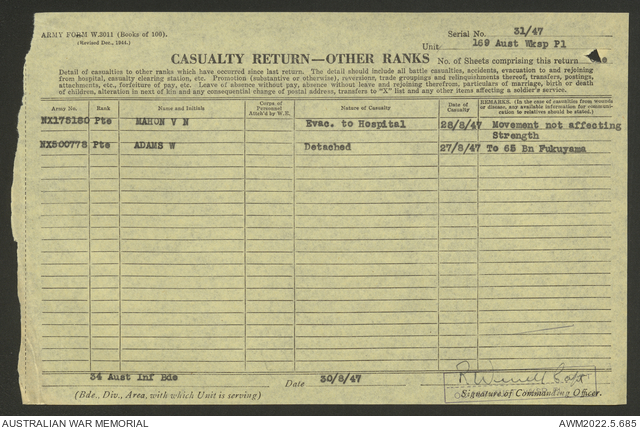 ARMY FORM W.3011 (Books of 100).
(Revised Dec., 1944.)
Serial No. 31/47
Unit 169 Aust Wksp Pl
CASUALTY RETURN—OTHER RANKS
No. of Sheets comprising this return
Detail of casualties to other ranks which have occurred since last return. The detail should include all battle casualties, accidents, evacuation to and rejoining
from hospital, casualty clearing station, etc. Promotion (substantive or otherwise), reversions, trade groupings and relinquishments thereof, transfers, postings,
attachments, etc., forfeiture of pay, etc. Leave of absence without pay, absence without leave and rejoining therefrom, particulars of marriage, birth or death
of children, alteration in next of kin and any consequential change of postal address, transfers to "X" list and any other items affecting a soldier's service.
Army No. Rank Name and Initials Corps of Personnel Attch'd by W.E. Nature of Casualty Date of Casualty REMARKS. (In the case of casualties from wounds or disease, any available information for communication to relatives should be stated.)
NX178180 Pte MAHON V N Evac. to Hospital 28/8/47 Movement not affecting
Strength
NX500778 Pte ADAMS W Detached 27/8/47 To 65 Bn Fukuyama
34 Aust Inf Bde
Date 30/8/47
(Bde., Div., Area, with which Unit is serving)
Signature of Commanding Officer.
AUSTRALIAN WAR MEMORIAL
AWM2022.5.685